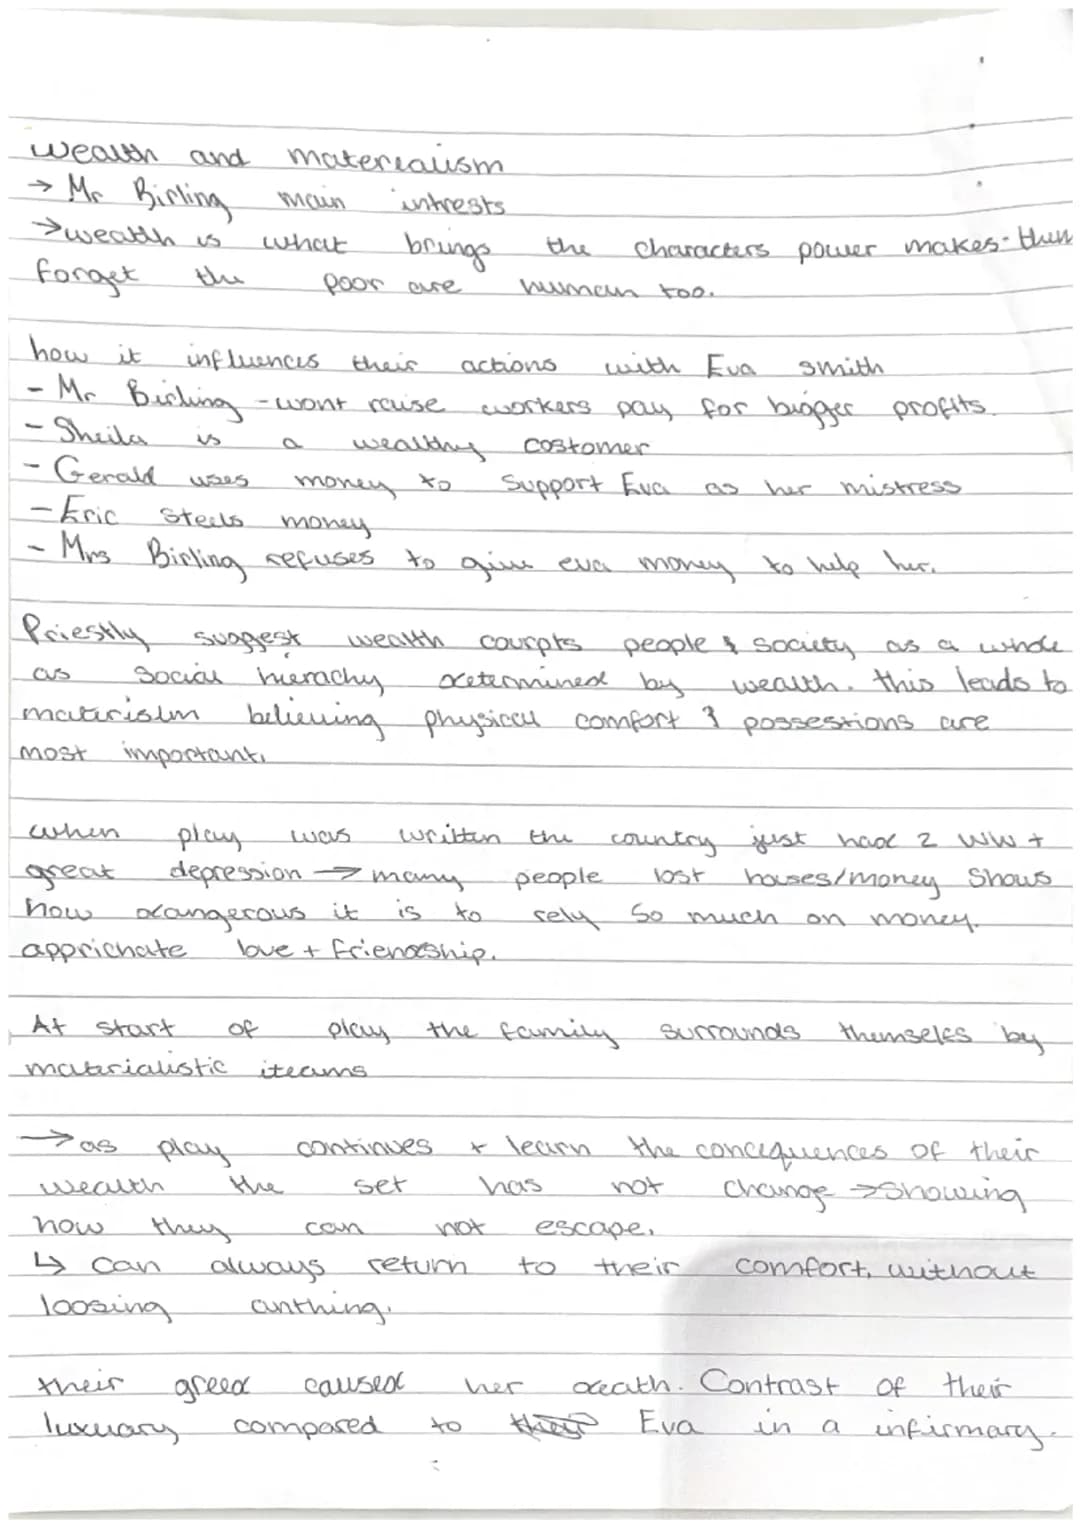 wealth and materealism
→ Mr Birling main intrests
→wealth is what brings the characters power makes them
forget the poor are human too.
how it influences their actions with Eva smith
- Mr Birling - wont raise workers pay for bigger profits.
- Sheila is a wealthy costomer
- Gerald uses money to support Eva as her mistress
- Eric steels money
- Mrs Birling refuses to give eva money to help her.
Priestly suggest wealth courpts people & society as a whole
as social hierachy determined by wealth. this leads to
matirislm believing physical comfort & possestions are
most important.
when play was written the country just had 2 WW +
great depression → many people lost houses/money shows
how dangerous it is to rely so much on money.
apprichate love + friendship.
At start of play the family surrounds themseles by
materialistic iteams
→ as play continues + learn the concequences of their
wealth the set has not change → showing
how they can not escape.
↳ can always return to their comfort, without
loosing anthing.
their greed caused her death. Contrast of their
luxuary compared to Eva in a infirmary.